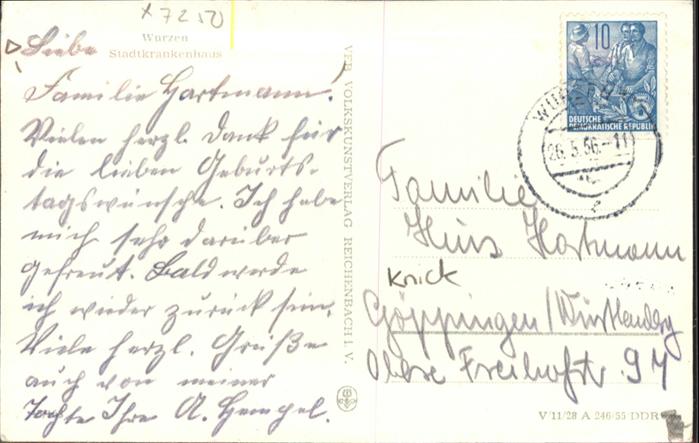 x7250
Wurzen
Stadtkrankenhaus
Liebe
Familie Hartmann.
Vielen herzl. Dank für
die lieben Geburts-
tagswünsche. Ich habe
mich sehr darüber
gefreut. Bald werde
ich wieder zurück sein.
Viele herzl. Grüße
auch von meiner
Ihre A. Hempel.
VEB VOLKSKUNSTVERLAG REICHENBACH I. V.
10
DEUTSCHE
DEMOKRATISCHE REPUBLIK
26.5.56.-11
Familie
Hartmann
Knick
Göppingen/Württembg
Obere Freihofstr. 94
V/11/28 A 246/55 DDR